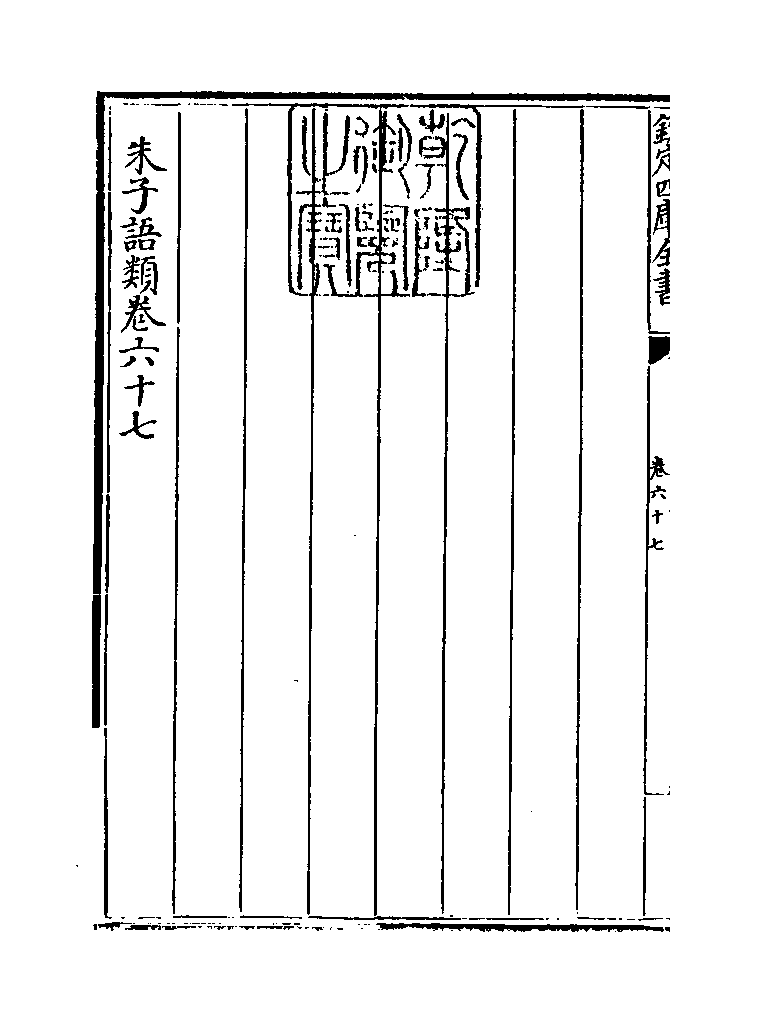 欽定四庫全書
卷六十七
乾隆御覽之寶
朱子語類卷六十七